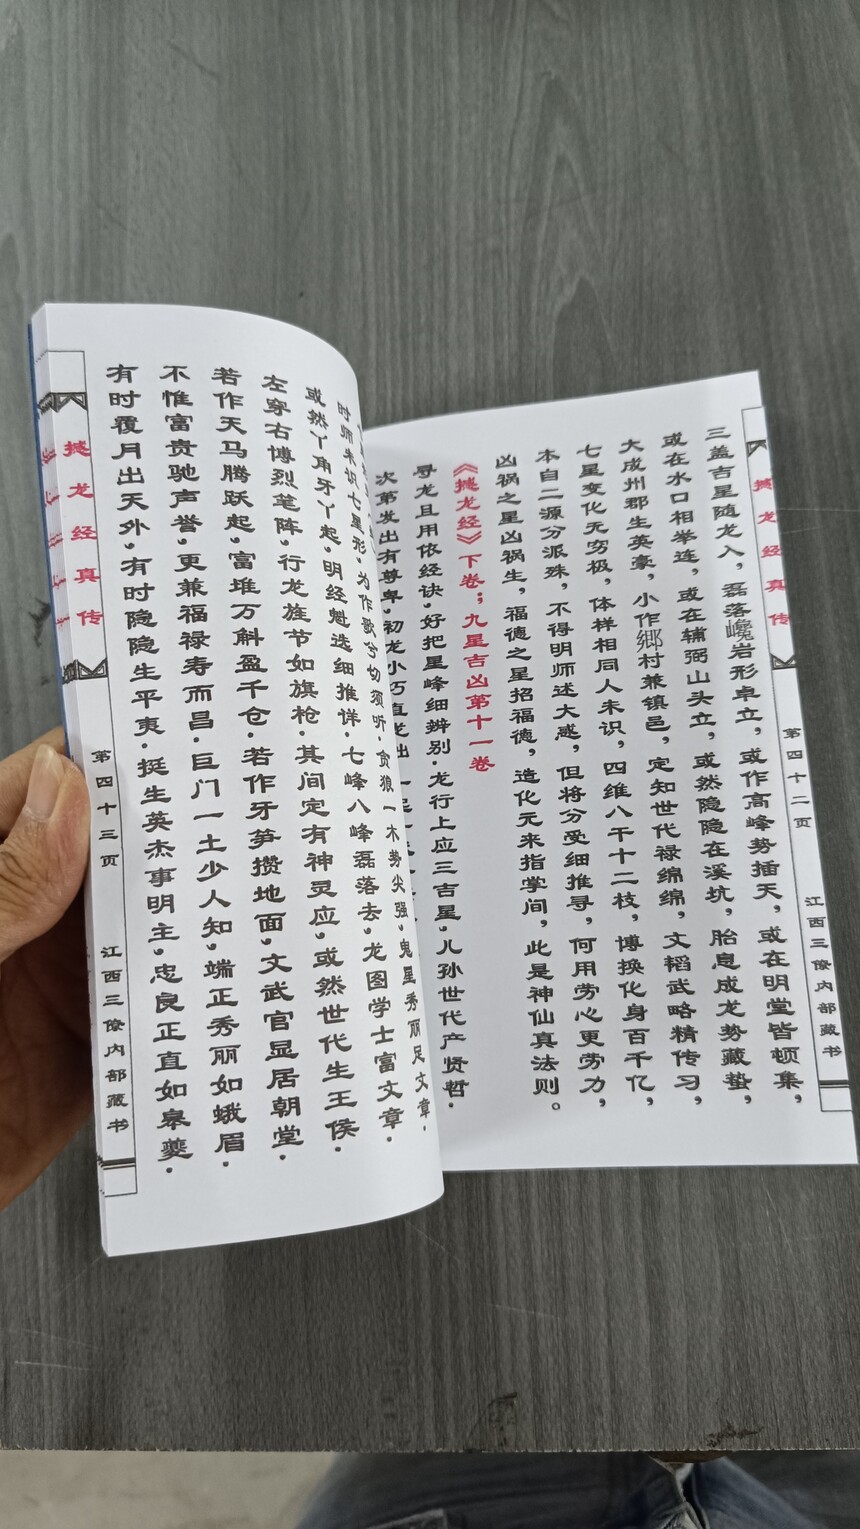 撼龙经真传
第四十二页
江西三僚内部藏书
三盖吉星随龙入，磊落巉岩形卓立，或作高峰势插天，或在明堂皆顿集，
或在水口相举连，或在辅弼山头立，或然隐隐在溪坑，胎息成龙势藏蛰，
大成州郡生英豪，小作鄉村兼镇邑，定知世代禄绵绵，文韬武略精传习，
七星变化无穷极，体样相同人未识，四维八干十二枝，博换化身百千亿，
本自二源分派殊，不得明师述大惑，但将分受细推寻，何用劳心更劳力，
凶祸之星凶祸生，福德之星招福德，造化元来指掌间，此是神仙真法则。
《撼龙经》下卷；九星吉凶第十一卷
寻龙且用依经诀，好把星峰细辨别．龙行上应三吉星，儿孙世代产贤哲．
次第发出有尊卑，初龙小巧直龙出
贪狼一木势尖强，鬼星秀丽足文章．
时师未识七星形，为作歌兮切须听．
或然丫角牙丫起，明经魁选细推详．七峰八峰磊落去，龙图学士富文章．
左穿右博烈笔阵，行龙旌节如旗枪．其间定有神灵应，或然世代生王侯．
若作天马腾跃起，富堆万斛盈千仓．若作牙笋攒地面，文武官显居朝堂．
不惟富贵驰声誉，更兼福禄寿而昌．巨门一土少人知，端正秀丽如蛾眉．
有时覆月出天外，有时隐隐生平夷．挺生英杰事明主，忠良正直如皋夔．
撼龙经真传
第四十三页
江西三僚内部藏书